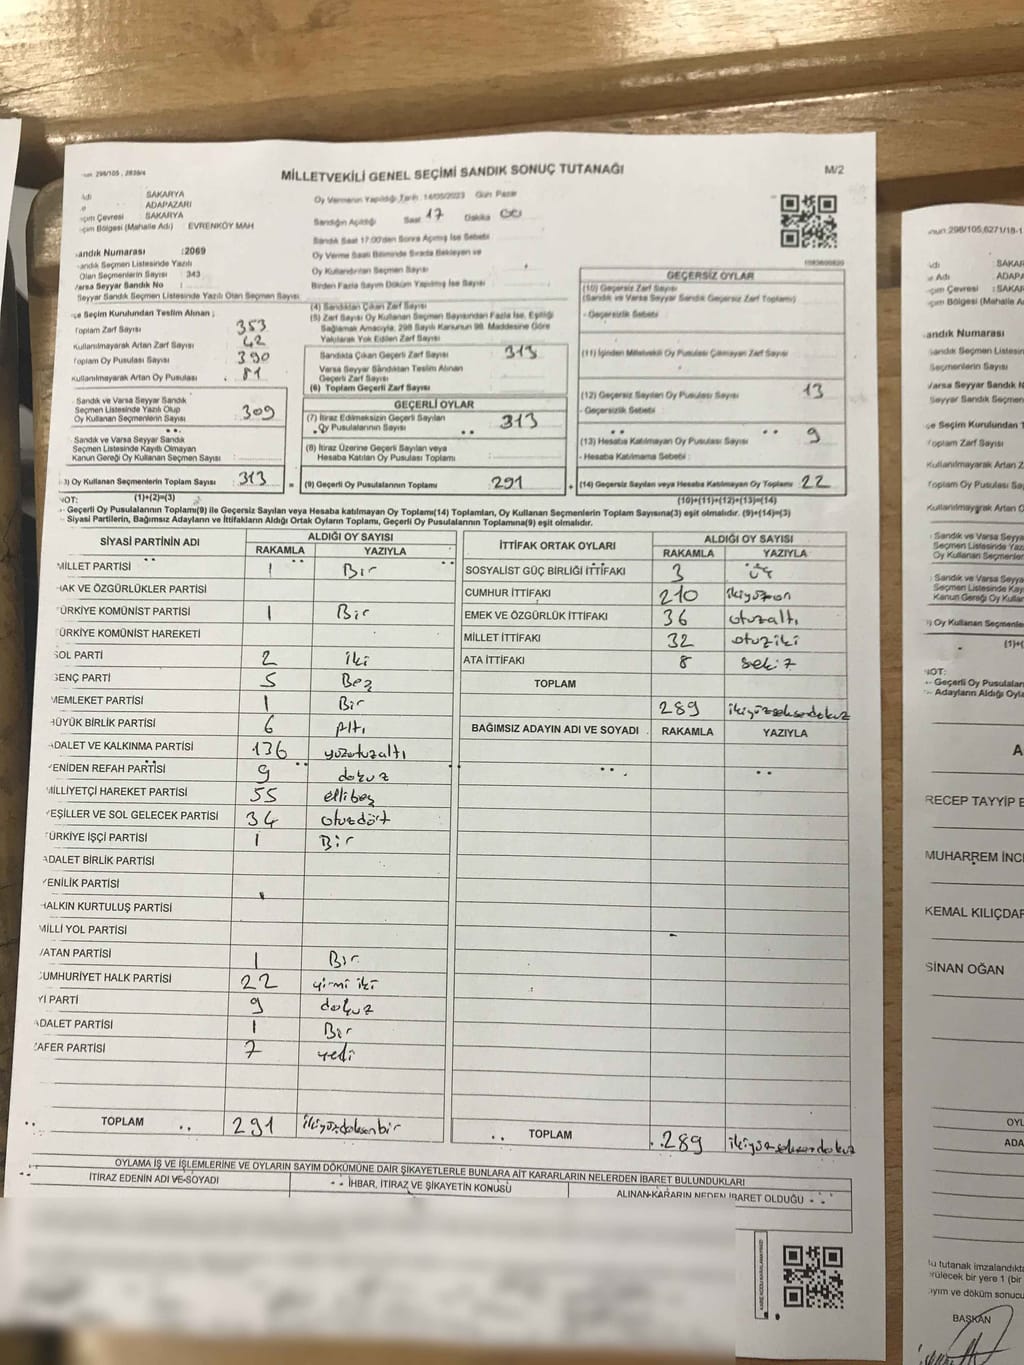 298/105, 2839/4
MİLLETVEKİLİ GENEL SEÇİMİ SANDIK SONUÇ TUTANAĞI
M/2
SAKARYA
ADAPAZARI
çim Çevresi SAKARYA
çim Bölgesi (Mahalle Adı) EVRENKÖY MAH
andık Numarası :2069
andık Seçmen Listesinde Yazılı
Olan Seçmenlerin Sayısı : 343
Varsa Seyyar Sandık No
Seyyar Sandık Seçmen Listesinde Yazılı Olan Seçmen Sayısı:
çe Seçim Kurulundan Teslim Alınan ;
Toplam Zarf Sayısı 353
Kullanılmayarak Artan Zarf Sayısı 42
Toplam Oy Pusulası Sayısı 390
Kullanılmayarak Artan Oy Pusulası 81
Sandık ve Varsa Seyyar Sandık
Seçmen Listesinde Yazılı Olup
Oy Kullanan Seçmenlerin Sayısı 309
Sandık ve Varsa Seyyar Sandık
Seçmen Listesinde Kayıtlı Olmayan
Kanun Gereği Oy Kullanan Seçmen Sayısı
3) Oy Kullanan Seçmenlerin Toplam Sayısı 313
(1)+(2)=(3)
Oy Vermenin Yapıldığı Tarih : 14/05/2023 Gün Pazar
Sandığın Açıldığı Saat 17 Dakika 00
Sandık Saat 17:00'den Sonra Açılmış İse Sebebi
Oy Verme Saati Bitiminde Sırada Bekleyen ve
Oy Kullandırılan Seçmen Sayısı
Birden Fazla Sayım Döküm Yapılmış İse Sayısı
(4) Sandıktan Çıkan Zarf Sayısı
(5) Zarf Sayısı Oy Kullanan Seçmen Sayısından Fazla İse, Eşitliği
Sağlamak Amacıyla, 298 Sayılı Kanunun 98. Maddesine Göre
Yakılarak Yok Edilen Zarf Sayısı
Sandıkta Çıkan Geçerli Zarf Sayısı 313
Varsa Seyyar Sandıktan Teslim Alınan
Geçerli Zarf Sayısı
(6) Toplam Geçerli Zarf Sayısı
GEÇERLİ OYLAR
(7) İtiraz Edilmeksizin Geçerli Sayılan
Oy Pusulalarının Sayısı 313
(8) İtiraz Üzerine Geçerli Sayılan veya
Hesaba Katılan Oy Pusulası Toplamı
(9) Geçerli Oy Pusulalarının Toplamı 291
GEÇERSİZ OYLAR
(10) Geçersiz Zarf Sayısı
(Sandık ve Varsa Seyyar Sandık Geçersiz Zarf Toplamı)
- Geçersizlik Sebebi
(11) İçinden Milletvekili Oy Pusulası Çıkmayan Zarf Sayısı
(12) Geçersiz Sayılan Oy Pusulası Sayısı 13
- Geçersizlik Sebebi
(13) Hesaba Katılmayan Oy Pusulası Sayısı 9
- Hesaba Katılmama Sebebi
(14) Geçersiz Sayılan veya Hesaba Katılmayan Oy Toplamı 22
(10)+(11)+(12)+(13)=(14)
NOT:
- Geçerli Oy Pusulalarının Toplamı(9) ile Geçersiz Sayılan veya Hesaba katılmayan Oy Toplamı(14) Toplamları, Oy Kullanan Seçmenlerin Toplam Sayısına(3) eşit olmalıdır. (9)+(14)=(3)
- Siyasi Partilerin, Bağımsız Adayların ve İttifakların Aldığı Ortak Oyların Toplamı, Geçerli Oy Pusulalarının Toplamına(9) eşit olmalıdır.
SİYASİ PARTİNİN ADI ALDIĞI OY SAYISI
RAKAMLA YAZIYLA
MİLLET PARTİSİ 1 Bir
HAK VE ÖZGÜRLÜKLER PARTİSİ
TÜRKİYE KOMÜNİST PARTİSİ 1 Bir
TÜRKİYE KOMÜNİST HAREKETİ
SOL PARTİ 2 iki
GENÇ PARTİ 5 Beş
MEMLEKET PARTİSİ 1 Bir
BÜYÜK BİRLİK PARTİSİ 6 Altı
ADALET VE KALKINMA PARTİSİ 136 yüzotuzaltı
YENİDEN REFAH PARTİSİ 9 dokuz
MİLLİYETÇİ HAREKET PARTİSİ 55 ellibeş
YEŞİLLER VE SOL GELECEK PARTİSİ 34 otuzdört
TÜRKİYE İŞÇİ PARTİSİ 1 Bir
ADALET BİRLİK PARTİSİ
YENİLİK PARTİSİ
HALKIN KURTULUŞ PARTİSİ
MİLLİ YOL PARTİSİ
VATAN PARTİSİ 1 Bir
CUMHURİYET HALK PARTİSİ 22 yirmi iki
İYİ PARTİ 9 dokuz
ADALET PARTİSİ 1 Bir
ZAFER PARTİSİ 7 yedi
TOPLAM 291 ikiyüzdoksanbir
İTTİFAK ORTAK OYLARI ALDIĞI OY SAYISI
RAKAMLA YAZIYLA
SOSYALİST GÜÇ BİRLİĞİ İTTİFAKI 3 üç
CUMHUR İTTİFAKI 210 ikiyüzon
EMEK VE ÖZGÜRLÜK İTTİFAKI 36 otuzaltı
MİLLET İTTİFAKI 32 otuziki
ATA İTTİFAKI 8 sekiz
TOPLAM
289 ikiyüzseksendokuz
BAĞIMSIZ ADAYIN ADI VE SOYADI RAKAMLA YAZIYLA
TOPLAM 289 ikiyüzseksendokuz
OYLAMA İŞ VE İŞLEMLERİNE VE OYLARIN SAYIM DÖKÜMÜNE DAİR ŞİKAYETLERLE BUNLARA AİT KARARLARIN NELERDEN İBARET BULUNDUKLARI
İTİRAZ EDENİN ADI VE SOYADI
İHBAR, İTİRAZ VE ŞİKAYETİN KONUSU
ALINAN KARARIN NEDEN İBARET OLDUĞU
298/105,6271/18-1
SAKAR
Adı ADAPA
çim Çevresi :SAKAR
çim Bölgesi (Mahalle Adı)
andık Numarası
andık Seçmen Listesin
Seçmenlerin Sayısı
Varsa Seyyar Sandık N
Seyyar Sandık Seçmen
çe Seçim Kurulundan T
Toplam Zarf Sayısı
Kullanılmayarak Artan Z
Toplam Oy Pusulası Sa
Kullanılmayarak Artan O
Sandık ve Varsa Seyya
Seçmen Listesinde Yaz
Oy Kullanan Seçmenle
Sandık ve Varsa Seyya
Seçmen Listesinde Kay
Kanun Gereği Oy Kulla
) Oy Kullanan Seçmenle
(1)+(
NOT:
- Geçerli Oy Pusulaların
- Adayların Aldığı Oyları
A
RECEP TAYYİP E
MUHARREM İNC
KEMAL KILIÇDAR
SİNAN OĞAN
OYL
ADA
u tutanak imzalandıkta
rülecek bir yere 1 (bir
ayım ve döküm sonucu
BAŞKAN